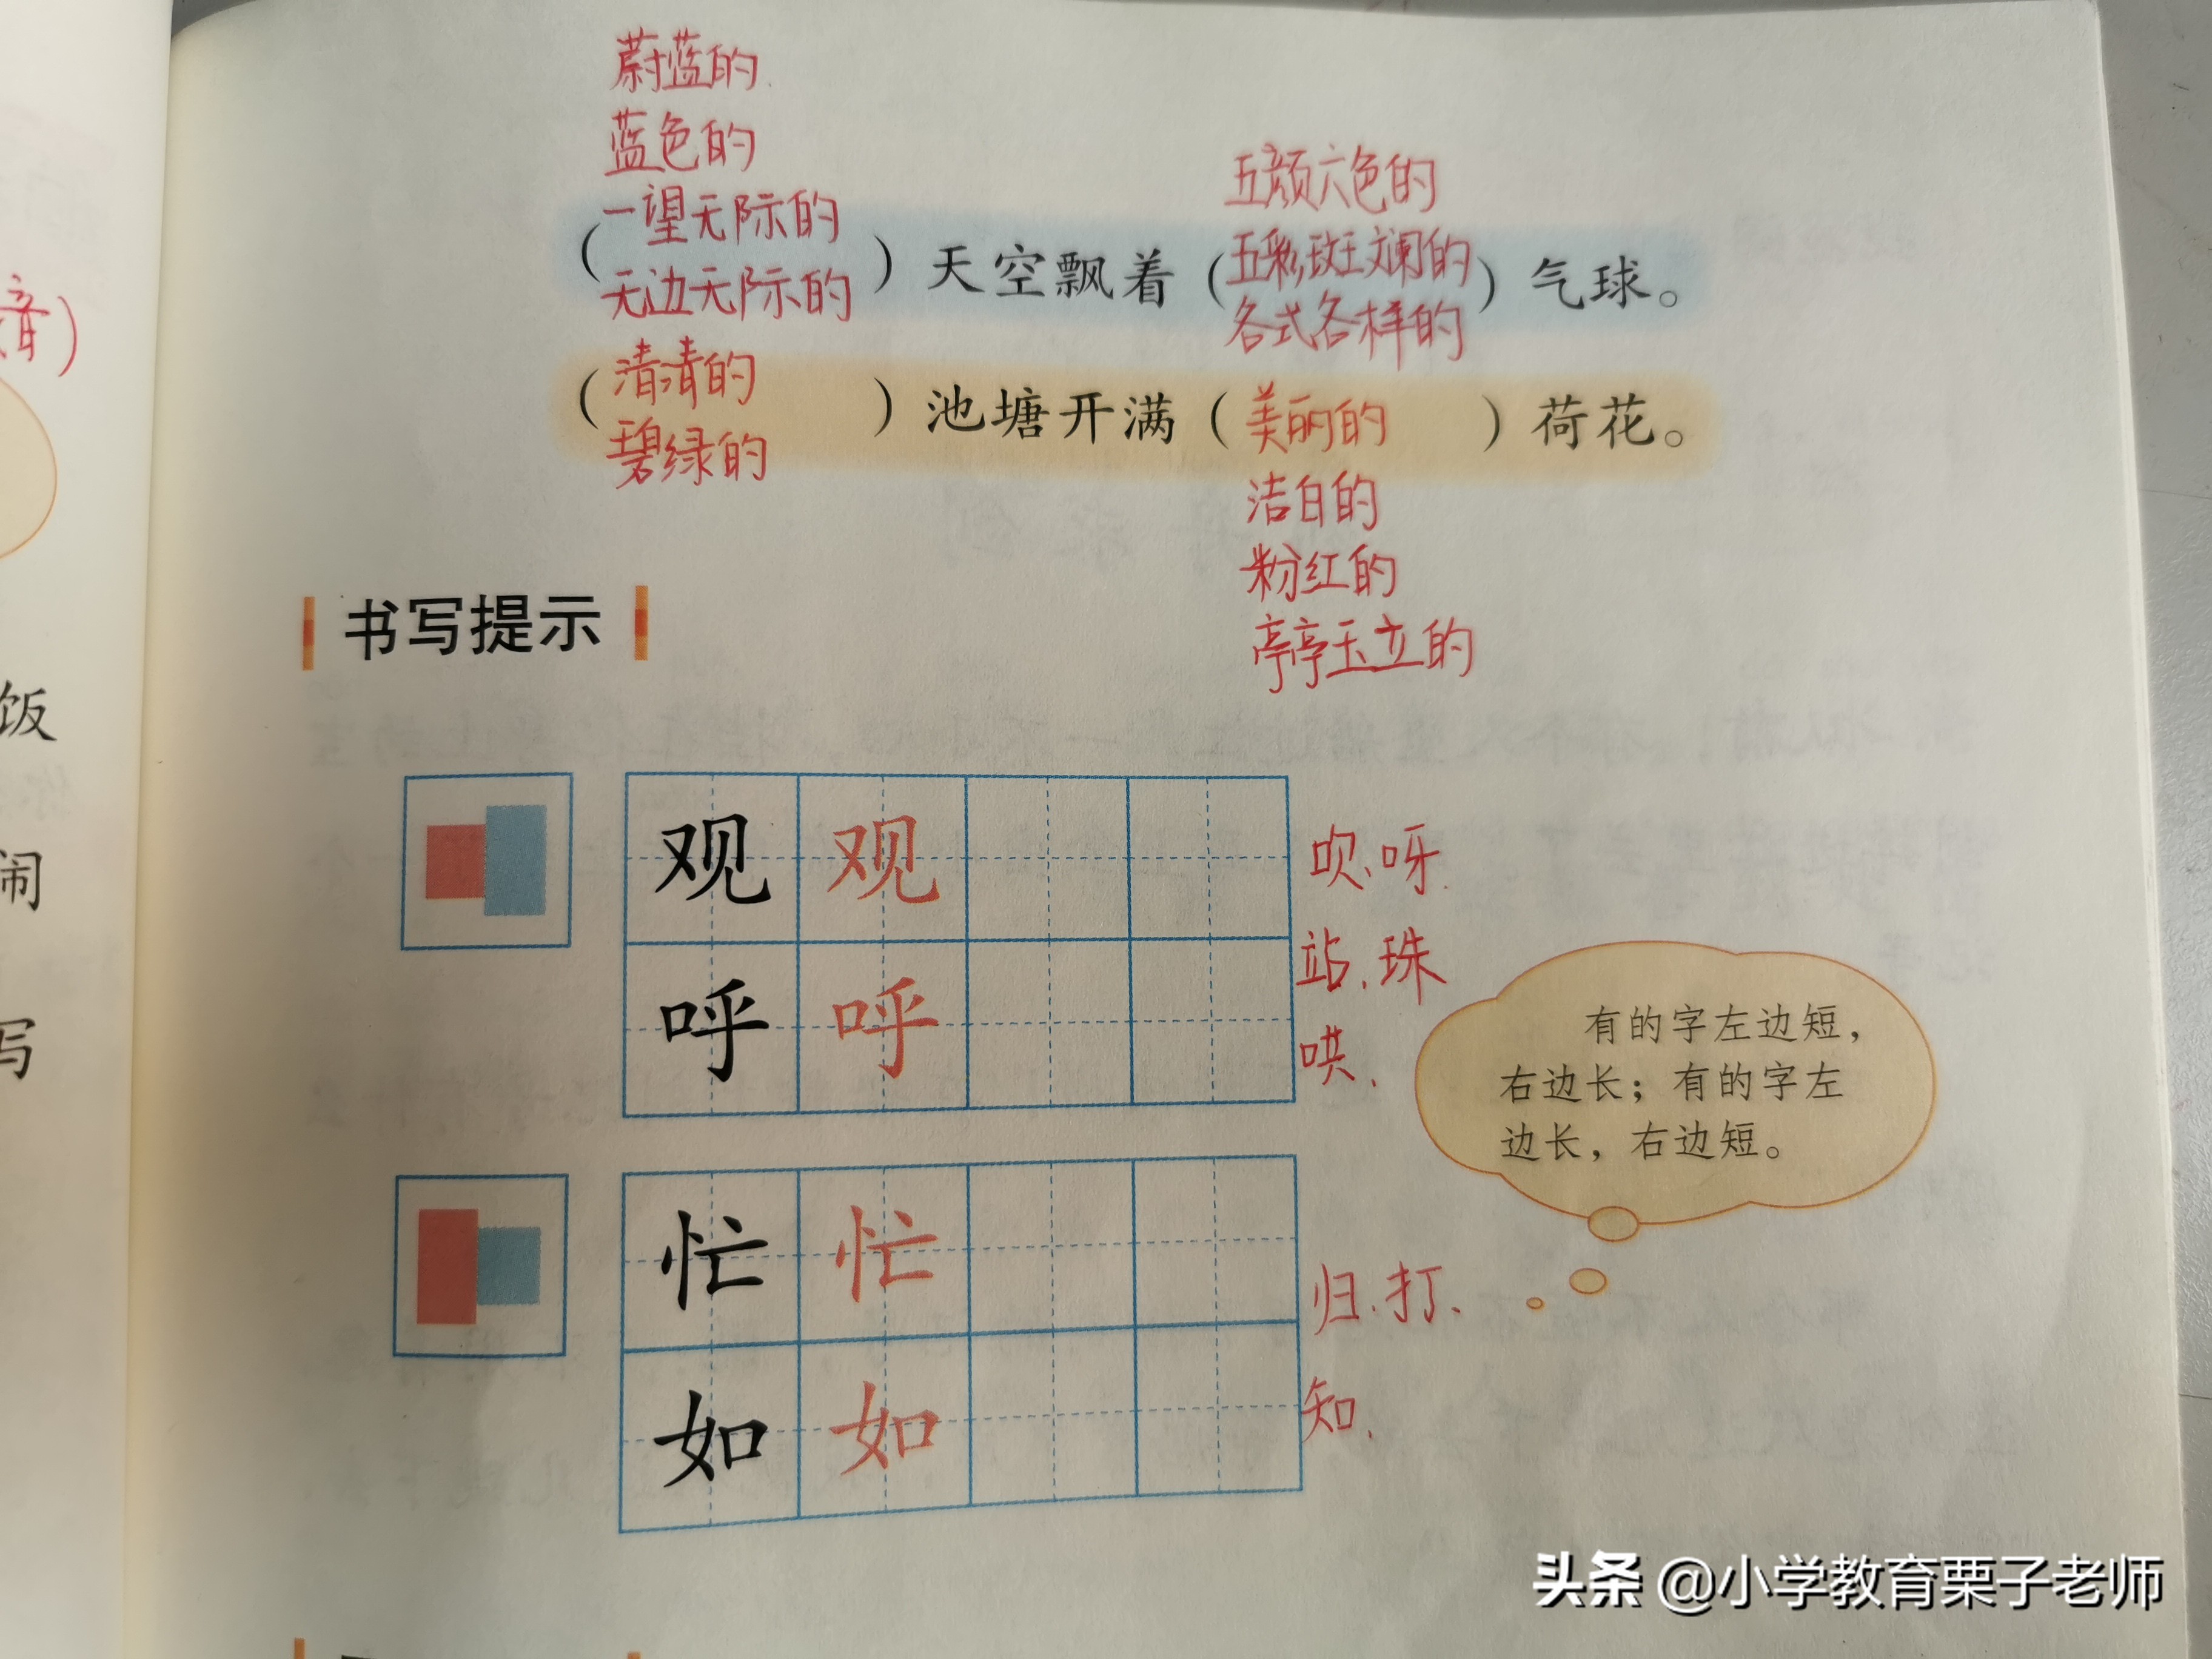 蔚蓝的
蓝色的
一望无际的
无边无际的
五颜六色的
五彩斑斓的
各式各样的
( ) 天空飘着 ( ) 气球。
清清的
碧绿的
( ) 池塘开满 ( 美丽的 ) 荷花。
洁白的
粉红的
亭亭玉立的
音)
饭
闹
写
书写提示
观 观
呼 呼
呗、呀
站、珠
哄、
有的字左边短，
右边长；有的字左
边长，右边短。
忙 忙
如 如
归、打、
知、
头条 @小学教育栗子老师